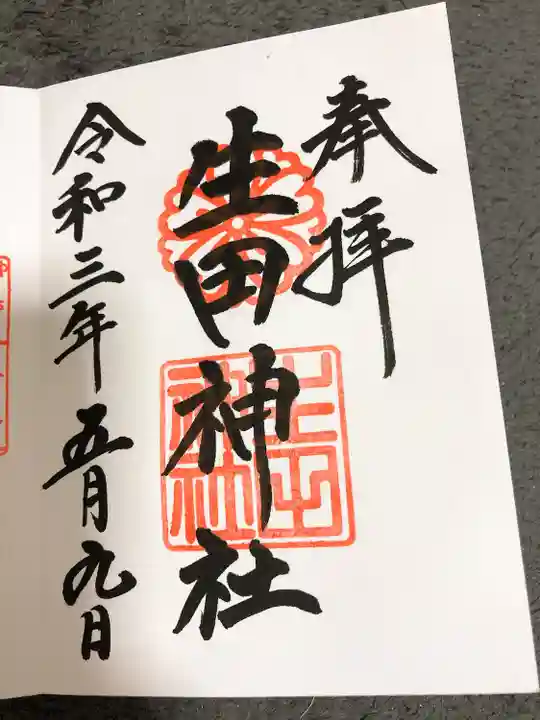 奉拝
生田神社
令和三年五月九日